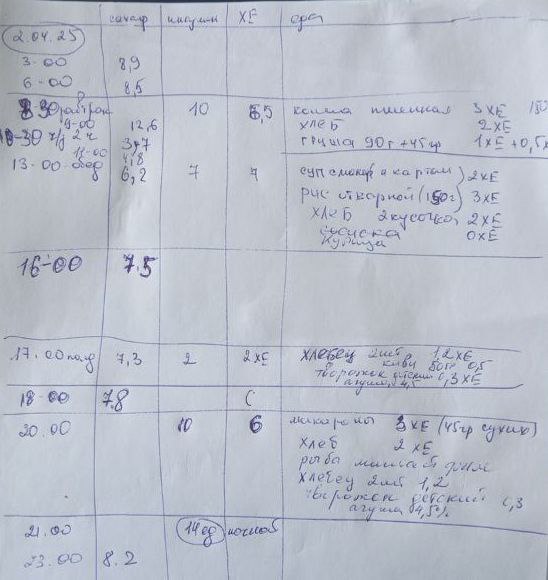 сахар инсулин ХЕ еда
2.04.25
3-00 8,9
6-00 8,5
8 30 завтрак 10 6,5 каша пшенная 3 ХЕ 150
9-00 12,6 хлеб 2 ХЕ
10-30 ч/з 2 ч 3,7 груша 90 г + 45 гр 1 ХЕ + 0,5
11-00 4,8
13-00 обед 6,2 7 7 суп с макар и картош 2 ХЕ
рис отварной (150 г) 3 ХЕ
хлеб 2 кусочка 2 ХЕ
сосиска 0 ХЕ
курица
16-00 7.5
17.00 полд 7,3 2 2 ХЕ хлебец 2 шт 1,2 ХЕ
киви 50 г 0,5
творожок детский 0,3 ХЕ
агуша 4,5
18-00 7.8
20.00 10 6 макароны 3 ХЕ (45 гр сухих)
хлеб 2 ХЕ
рыба минтай
хлебец 2 шт 1,2
творожок детский 0,3
агуша 4,5%
21.00 14 ед ночной
23.00 8.2